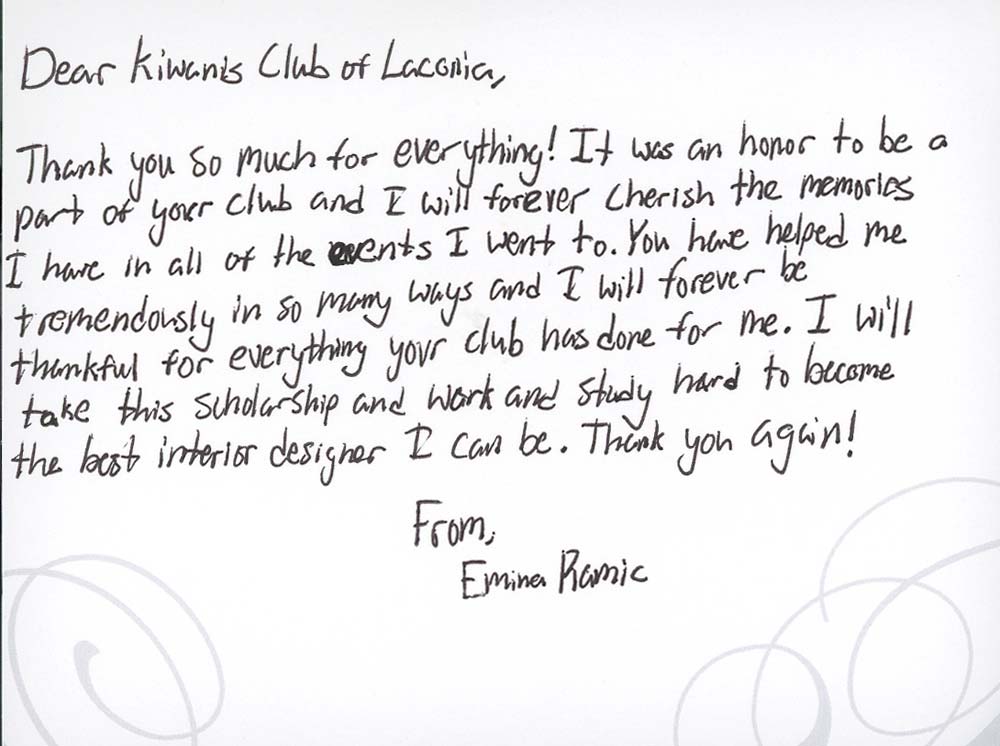 Dear Kiwanis Club of Laconia,
Thank you so much for everything! It was an honor to be a
part of your club and I will forever cherish the memories
I have in all of the events I went to. You have helped me
tremendously in so many ways and I will forever be
thankful for everything your club has done for me. I will
take this scholarship and work and study hard to become
the best interior designer I can be. Thank you again!
From,
Emina Ramic